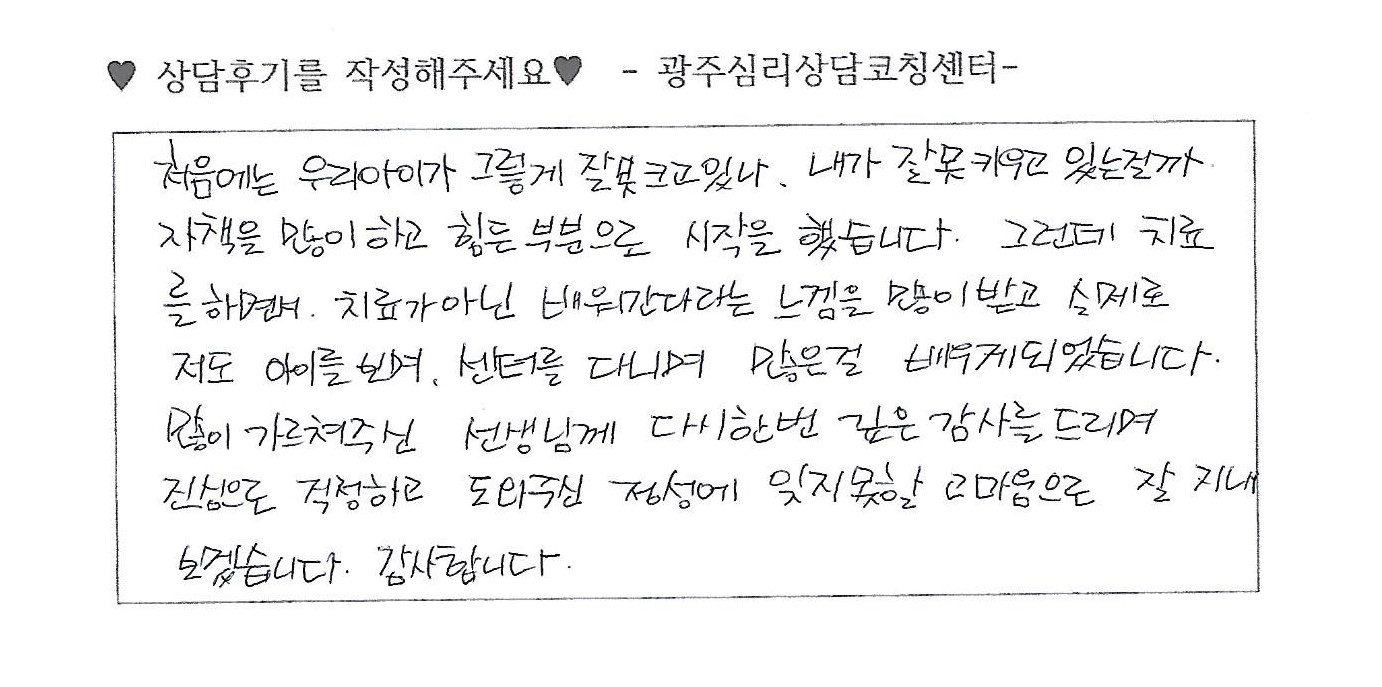 ♥ 상담후기를 작성해주세요♥ - 광주심리상담코칭센터-
처음에는 우리아이가 그렇게 잘못크고있나, 내가 잘못키우고 있는걸까
자책을 많이하고 힘든부분으로 시작을 했습니다. 그런데 치료
를하면서. 치료가아닌 배워간다라는 느낌을 많이받고 실제로
저도 아이를보며, 센터를 다니며 많은걸 배우게되었습니다.
많이 가르쳐주신 선생님께 다시한번 깊은감사를드리며
진심으로 걱정하고 도와주신 정성에 잊지못할 고마움으로 잘 지내
보겠습니다. 감사합니다.